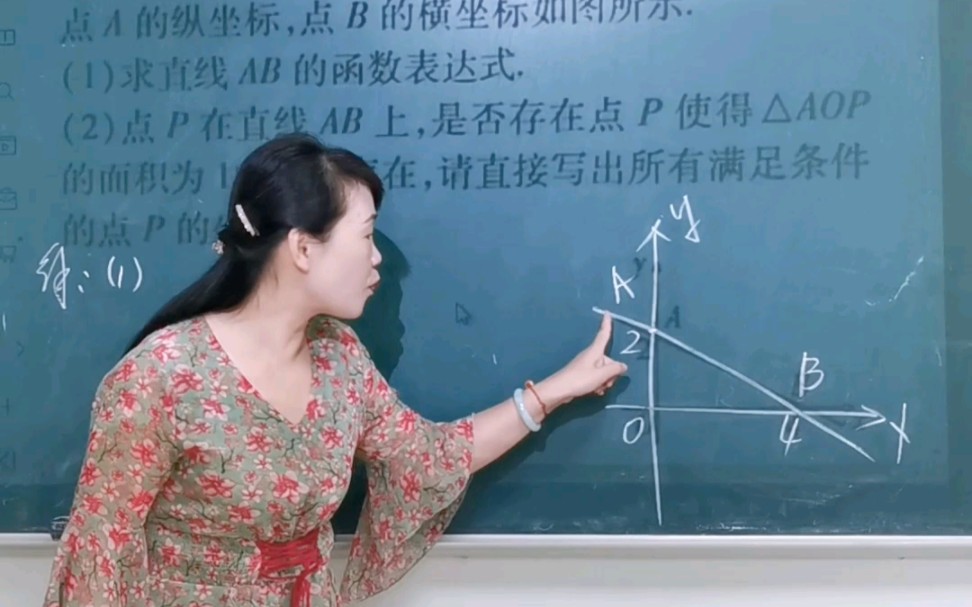 点 A 的纵坐标,点 B 的横坐标如图所示.
(1)求直线 AB 的函数表达式.
(2)点 P 在直线 AB 上,是否存在点 P 使得△AOP
的面积为 1 在,请直接写出所有满足条件
的点 P 的
解:(1)
y
A
A
2
B
O
4
x